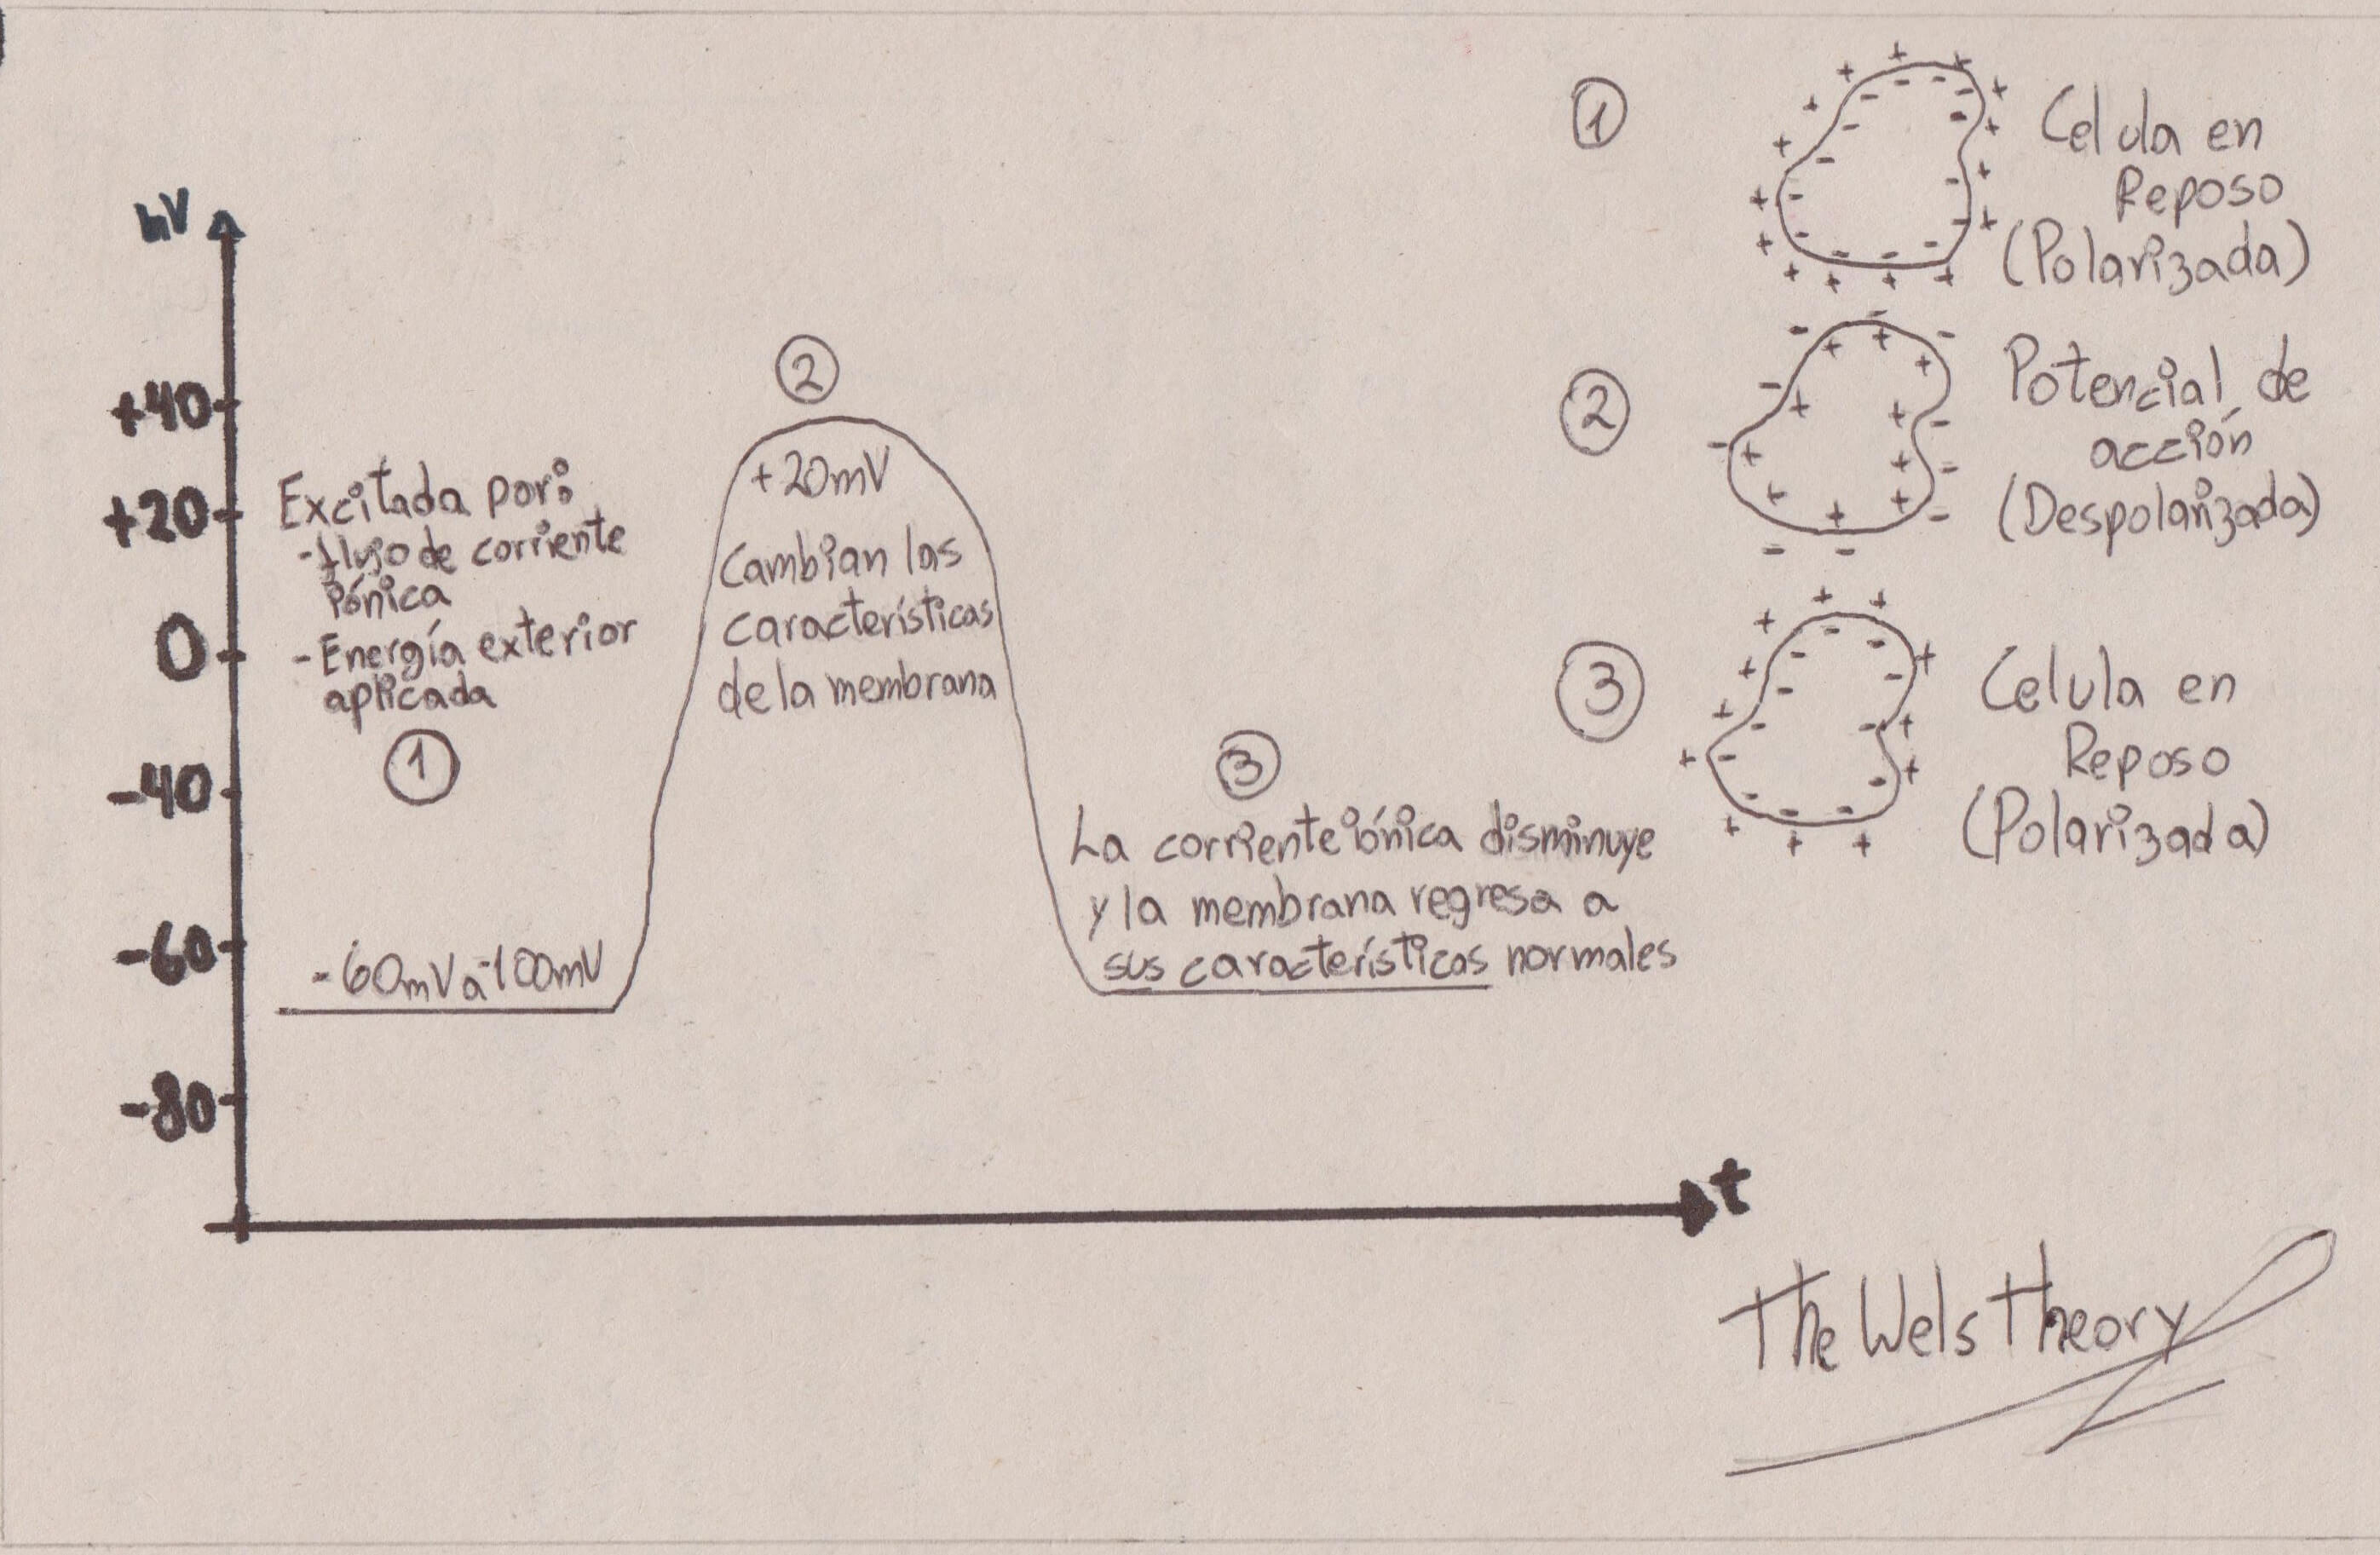 mV
+40
+20
0
-40
-60
-80
t
Excitada por:
-flujo de corriente
iónica
-Energía exterior
aplicada
1
-60mV a -100mV
2
+20mV
Cambian las
características
de la membrana
3
La corriente iónica disminuye
y la membrana regresa a
sus características normales
1
Celula en
Reposo
(Polarizada)
2
Potencial de
acción
(Despolarizada)
3
Celula en
Reposo
(Polarizada)
The Wels Theory